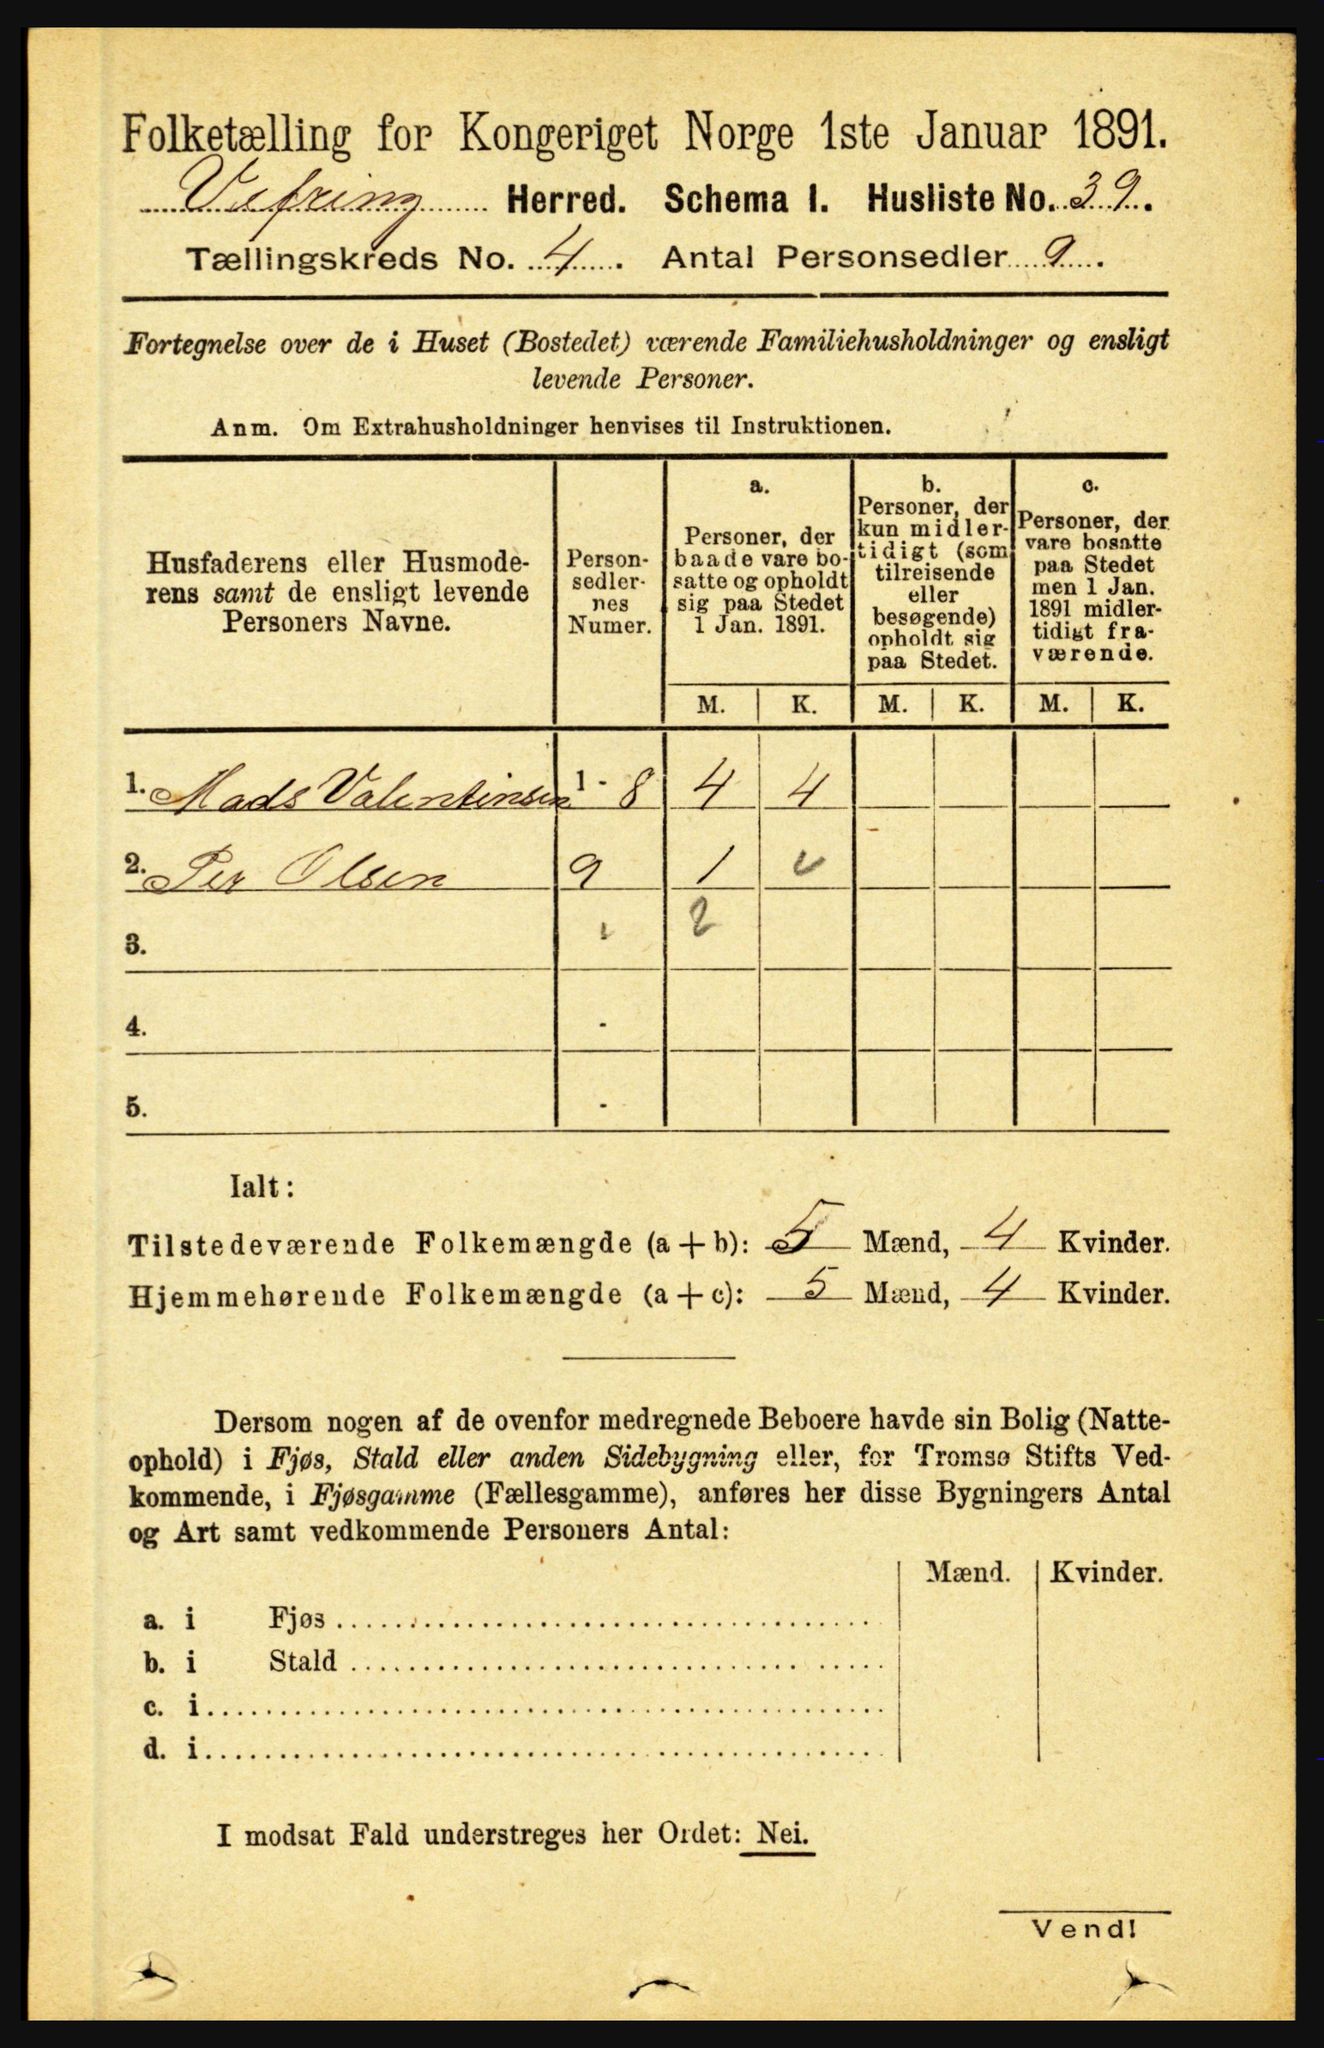 Folketælling for Kongeriget Norge 1ste Januar 1891.
Vefring Herred. Schema I. Husliste No. 39.
Tællingskreds No. 4. Antal Personsedler 9.
Fortegnelse over de i Huset (Bostedet) værende Familiehusholdninger og ensligt
levende Personer.
Anm. Om Extrahusholdninger henvises til Instruktionen.
Husfaderens eller Husmode-
rens samt de ensligt levende
Personers Navne.
Person-
sedler-
nes
Numer.
a.
Personer, der
baade vare bo-
satte og opholdt
sig paa Stedet
1 Jan. 1891.
b.
Personer, der
kun midler-
tidigt (som
tilreisende
eller
besøgende)
opholdt sig
paa Stedet.
c.
Personer, der
vare bosatte
paa Stedet
men 1 Jan.
1891 midler-
tidigt fra-
værende.
M. K. M. K. M. K.
1. Mads Valentinsen 1 - 8 4 4
2. Per Olsen 9 1
3. 2
4. -
5. -
Ialt:
Tilstedeværende Folkemængde (a + b): 5 Mænd, 4 Kvinder.
Hjemmehørende Folkemængde (a + c): 5 Mænd, 4 Kvinder.
Dersom nogen af de ovenfor medregnede Beboere havde sin Bolig (Natte-
ophold) i Fjøs, Stald eller anden Sidebygning eller, for Tromsø Stifts Ved-
kommende, i Fjøsgamme (Fællesgamme), anføres her disse Bygningers Antal
og Art samt vedkommende Personers Antal:
Mænd. Kvinder.
a. i Fjøs
b. i Stald
c. i
d. i
I modsat Fald understreges her Ordet: Nei.
Vend!